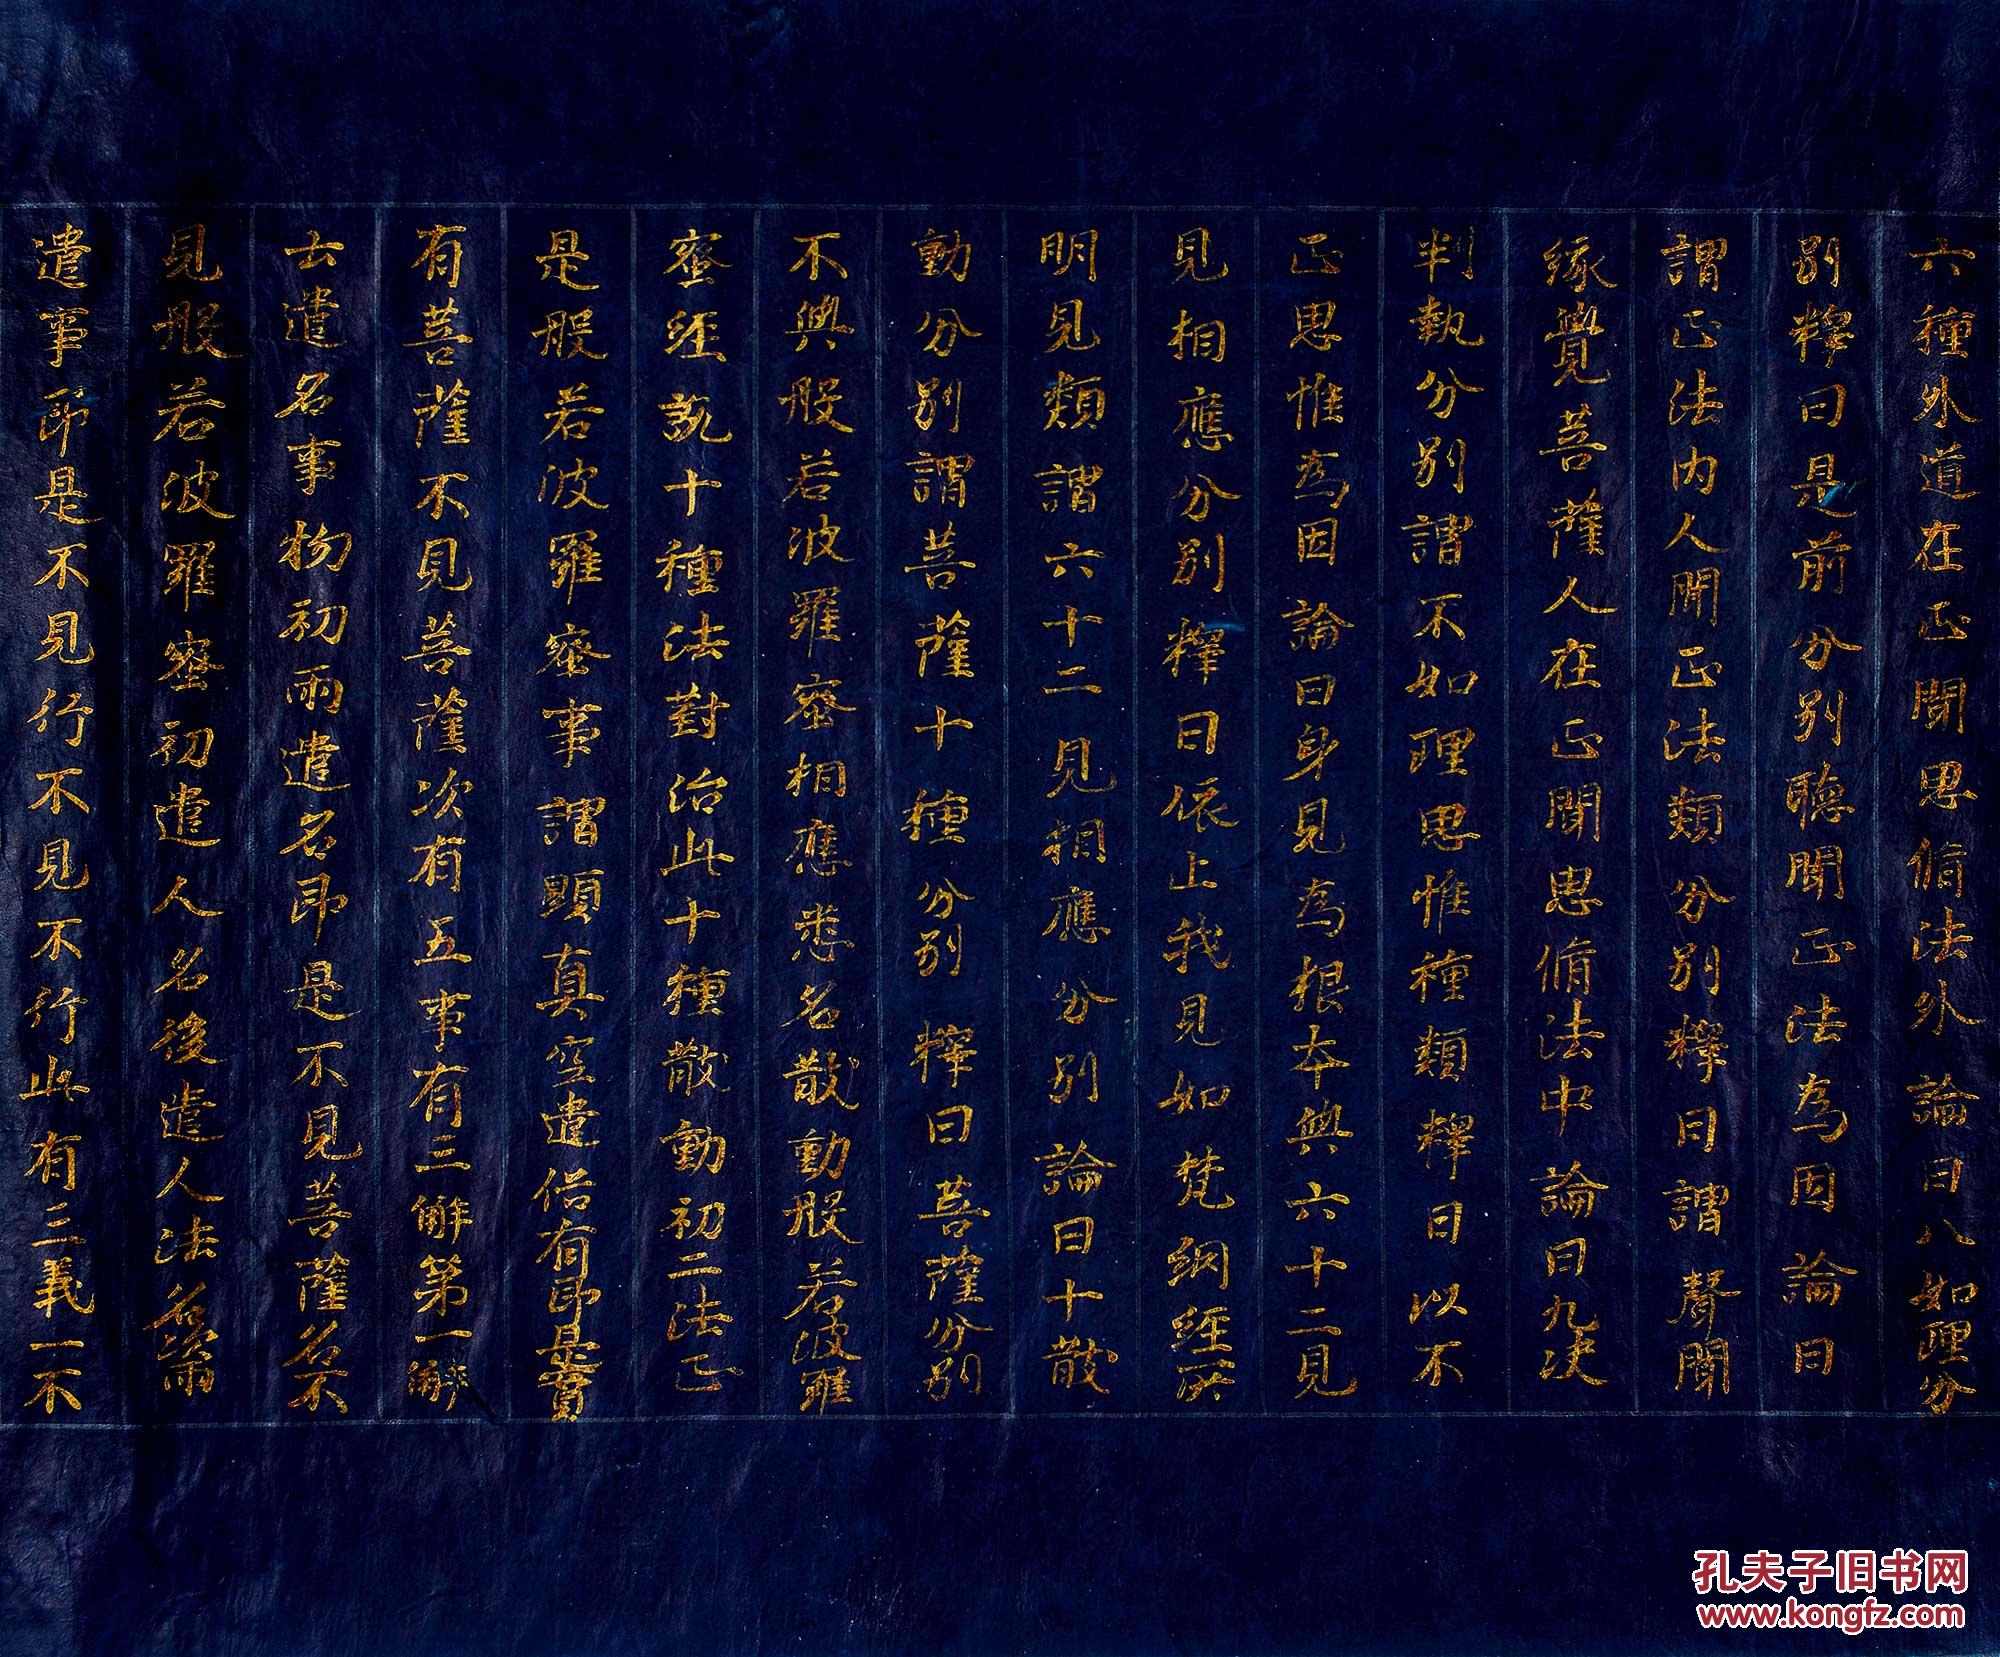 六種外道在正聞思脩法外論曰八如理分
別釋曰是前分別聽聞正法為因論曰
謂正法內人聞正法類分別釋曰謂聲聞
緣覺菩薩人在正聞思脩法中論曰九決
判執分別謂不如理思惟種類釋曰以不
正思惟為因論曰身見為根本與六十二見
見相應分別釋曰依上我見如梵網經所
明見類謂六十二見相應分別論曰十散
動分別謂菩薩十種分別釋曰菩薩分別
不與般若波羅蜜相應悉名散動般若波羅
蜜經說十種法對治此十種散動初二法正
是般若波羅蜜事謂顯真空遣俗有即是實
有菩薩不見菩薩次有五事有三解第一解
士遣名事物初兩遣名即是不見菩薩名不
見般若波羅蜜初遣人名後遣人法名兩
遣事即是不見行不見不行此有三義一不
孔夫子旧书网
www.kongfz.com